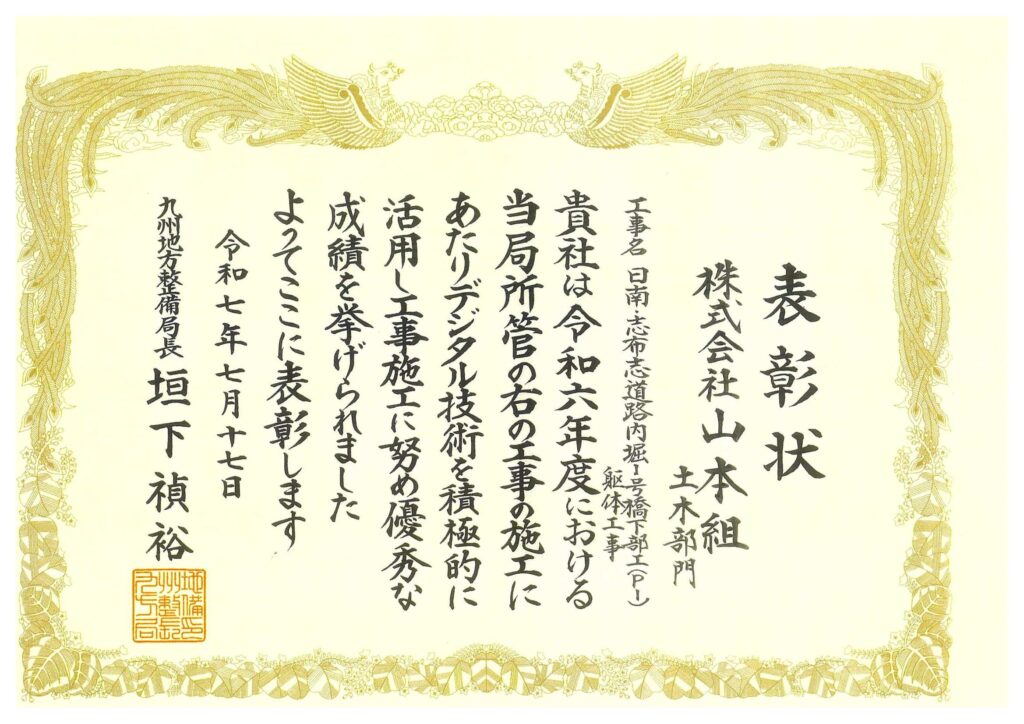 表彰状
株式会社山本組
土木部門
工事名 日南・志布志道路内堀1号橋下部工(P1)
躯体工事
貴社は令和六年度における
当局所管の右の工事の施工に
あたりデジタル技術を積極的に
活用し工事施工に努め優秀な
成績を挙げられました
よってここに表彰します
令和七年七月十七日
九州地方整備局長 垣下禎裕